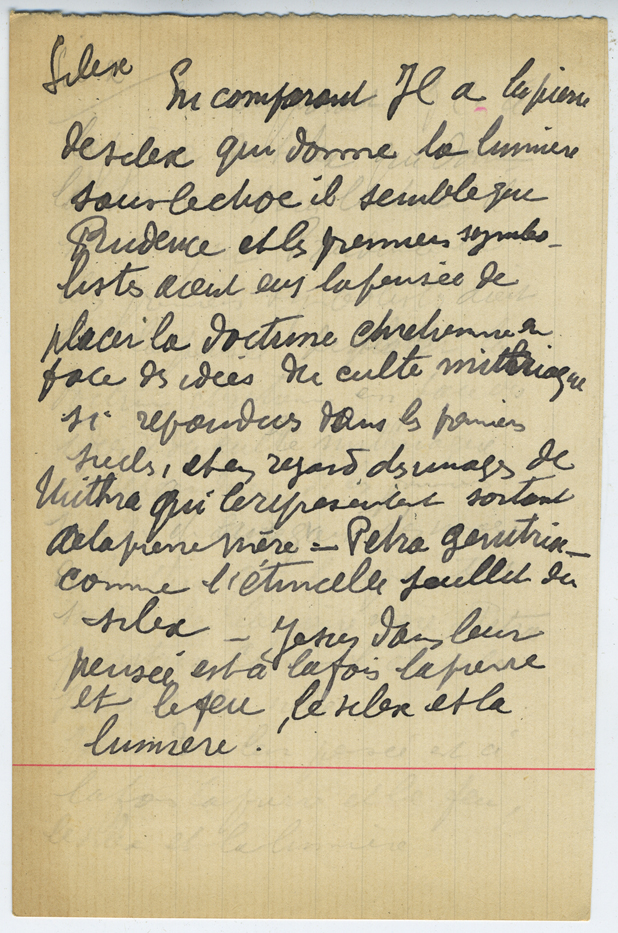 Silex
En comparant Jl a la pierre
de silex qui donne la lumiere
sous le choc il semble que
Prudence et les premiers symbo-
listes aient eus la pensée de
placer la doctrine chretienne en
face des idées du culte mithriaque
si repandues dans les premiers
siecles, et en regard des images de
Mithra qui le representent sortant
de la pierre mère = Petra genitrix -
comme l'étincelle jaillit du
silex - Jesus dans leur
pensée est à la fois la pierre
et le feu, le silex et la
lumiere.